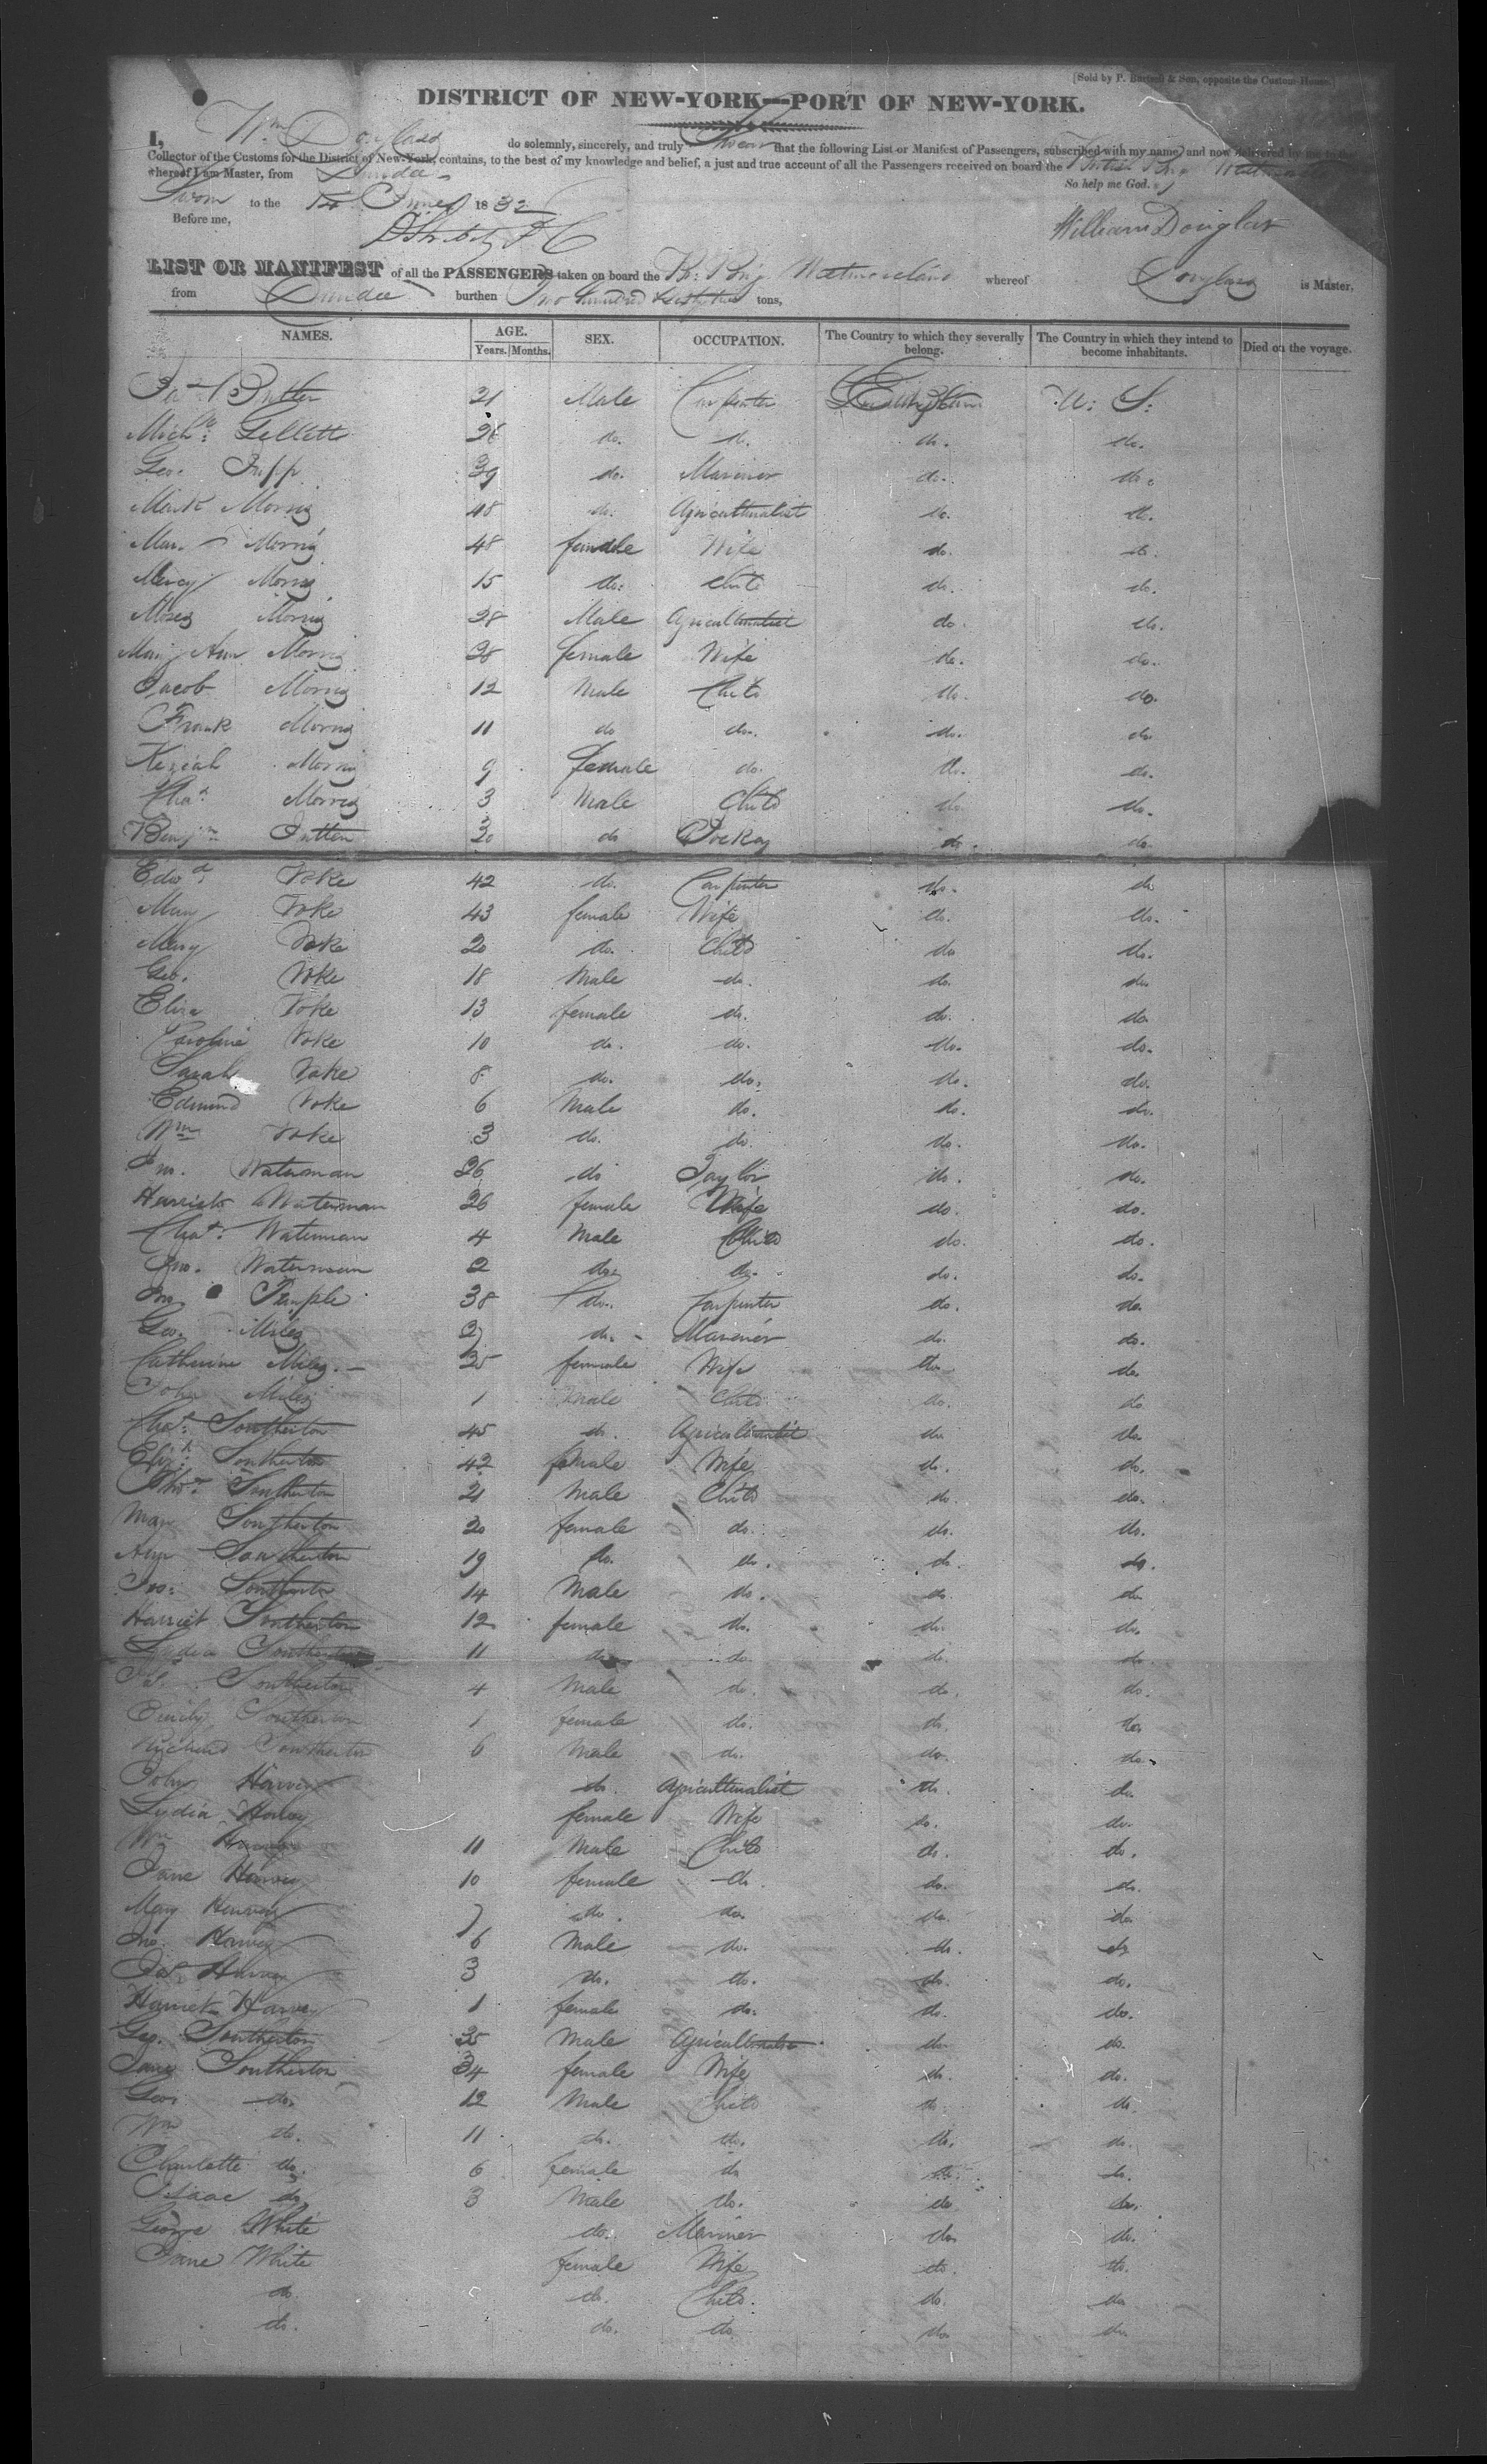 [Sold by P. Burtsell & Son, opposite the Custom-House.]
DISTRICT OF NEW-YORK—PORT OF NEW-YORK.
I, Wm. Douglass do solemnly, sincerely, and truly Swear that the following List or Manifest of Passengers, subscribed with my name, and now delivered by me to the
Collector of the Customs for the District of New-York, contains, to the best of my knowledge and belief, a just and true account of all the Passengers received on board the British Brig Westmoreland
whereof I am Master, from Dundee
So help me God.
Sworn to the 14 June 1832
William Douglass
Before me,
LIST OR MANIFEST of all the PASSENGERS taken on board the Br. Brig Westmoreland whereof Douglass is Master,
from Dundee burthen Two hundred tons,
NAMES. AGE. Years. Months. SEX. OCCUPATION. The Country to which they severally belong. The Country in which they intend to become inhabitants. Died on the voyage.
Butler 21 Male Carpenter U: S:
Michl. Gellett 26 do. do. do. do.
Geo. 39 do. Mariner do. do.
Mark Morris 48 do. Agriculturalist do. do.
Mar. Morris 48 female Wife do. do.
Mercy Morris 15 do. Child do. do.
Moses Morris 38 Male Agriculturalist do. do.
Mary Ann Morris 38 female Wife do. do.
Jacob Morris 12 Male Child do. do.
Frank Morris 11 do do. do. do
Keziah Morris 9 female do. do. do.
Chas. Morris 3 Male Child do do.
Benjn. 30 do Jockey do. do.
Edwd. Voke 42 do. Carpenter do. do
Mary Voke 43 female Wife do. do.
Mary Voke 20 do. Child do do.
Geo. Voke 18 Male do. do. do
Eliza Voke 13 female do. do. do
Caroline Voke 10 do. do. do. do.
Sarah Voke 8 do. do. do. do.
Edmund Voke 6 Male do. do. do.
Wm Voke 3 do. do. do. do.
Jno. Waterman 26 do Taylor do. do.
Harriet Waterman 26 female Wife do. do.
Chas. Waterman 4 Male Child do. do.
Jno. Waterman 2 do. do. do. do.
Jno. Temple 38 do. Carpenter do. do.
Geo. Miles 27 do. Mariner do. do.
Catherine Miles 25 female Wife do do
John Miles 1 Male Child do. do
Chas. Southerton 45 do. Agriculturalist do do
Eliz. Southerton 42 female Wife do. do.
Thos. Southerton 21 Male Child do. do.
Mary Southerton 20 female do. do. do.
Ann Southerton 19 do. do. do. do.
Jno. Southerton 14 Male do. do. do
Harriet Southerton 12 female do. do. do.
Lydia Southerton 11 do do. do. do
Southerton 4 Male do. do. do.
Emily Southerton 1 female do. do. do
Richard Southerton 6 Male do. do. do.
John Harvey do Agriculturalist do. do.
Lydia Harvey female Wife do. do.
Wm Harvey 11 Male Child do. do.
Jane Harvey 10 female do. do. do.
Mary Harvey 7 do. do. do. do
Jno. Harvey 6 Male do. do. do
Jas. Harvey 3 do. do. do. do.
Harriet Harvey 1 female do. do. do.
Geo. Southerton 35 Male Agriculturalist do do.
Jane Southerton 34 female Wife do. do.
Geo. do. 12 Male Child do. do.
Wm do. 11 do. do. do. do.
Charlotte do. 6 female do do. do.
Isaac do. 3 Male do. do do.
George White do. Mariner do. do.
Jane White female Wife do. do.
do. do. Child. do. do
do. do. do do. do